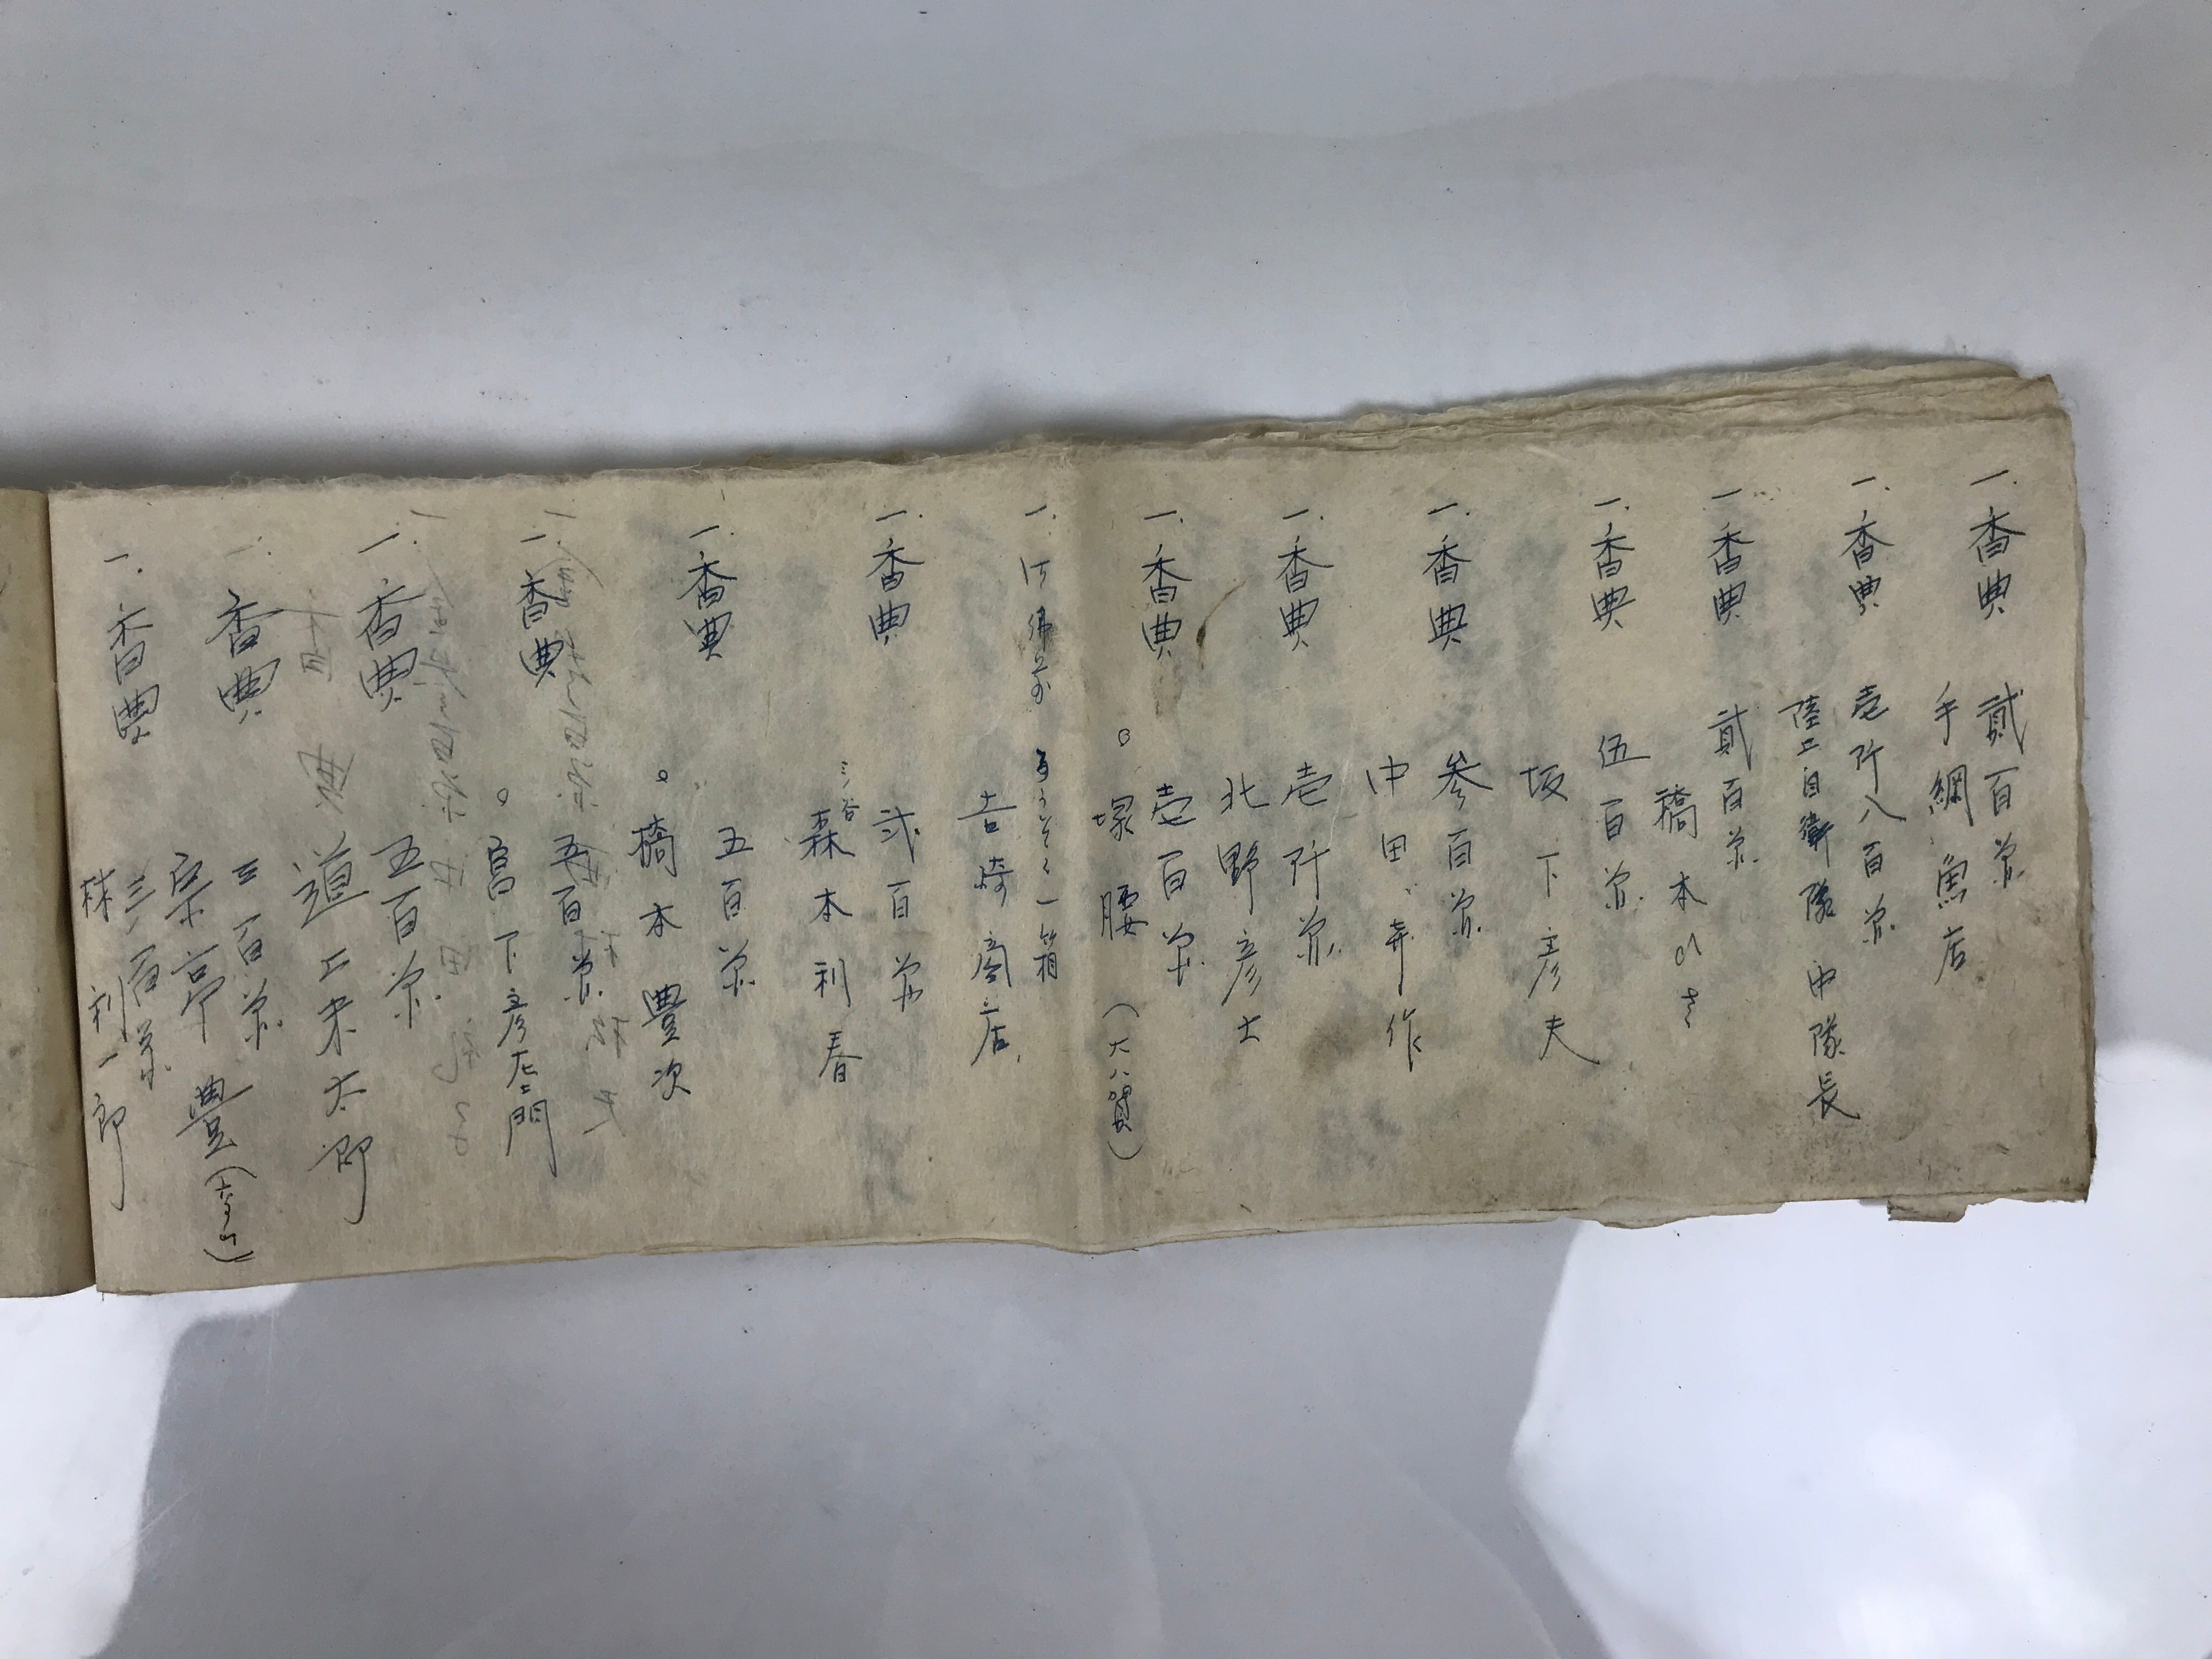 一、香典 貳百円
手綱魚店
一、香典 壱阡八百円
陸上自衛隊中隊長
一、香典 貳百円
橋本
一、香典 伍百円
坂下彦夫
一、香典 参百円
中田 作
一、香典 壱阡円
北野彦士
一、香典 壱百円
塚腰(大八賀)
一、御佛前 ろうそく一箱
吉崎商店
一、香典 弐百円
三谷
森本利春
一、香典 五百円
橋本豊次
一、香典 五百円
宮下彦左エ門
一、香典 五百円
道上末太郎
一、香典 三百円
豊
一、香典 三百円
林利一郎